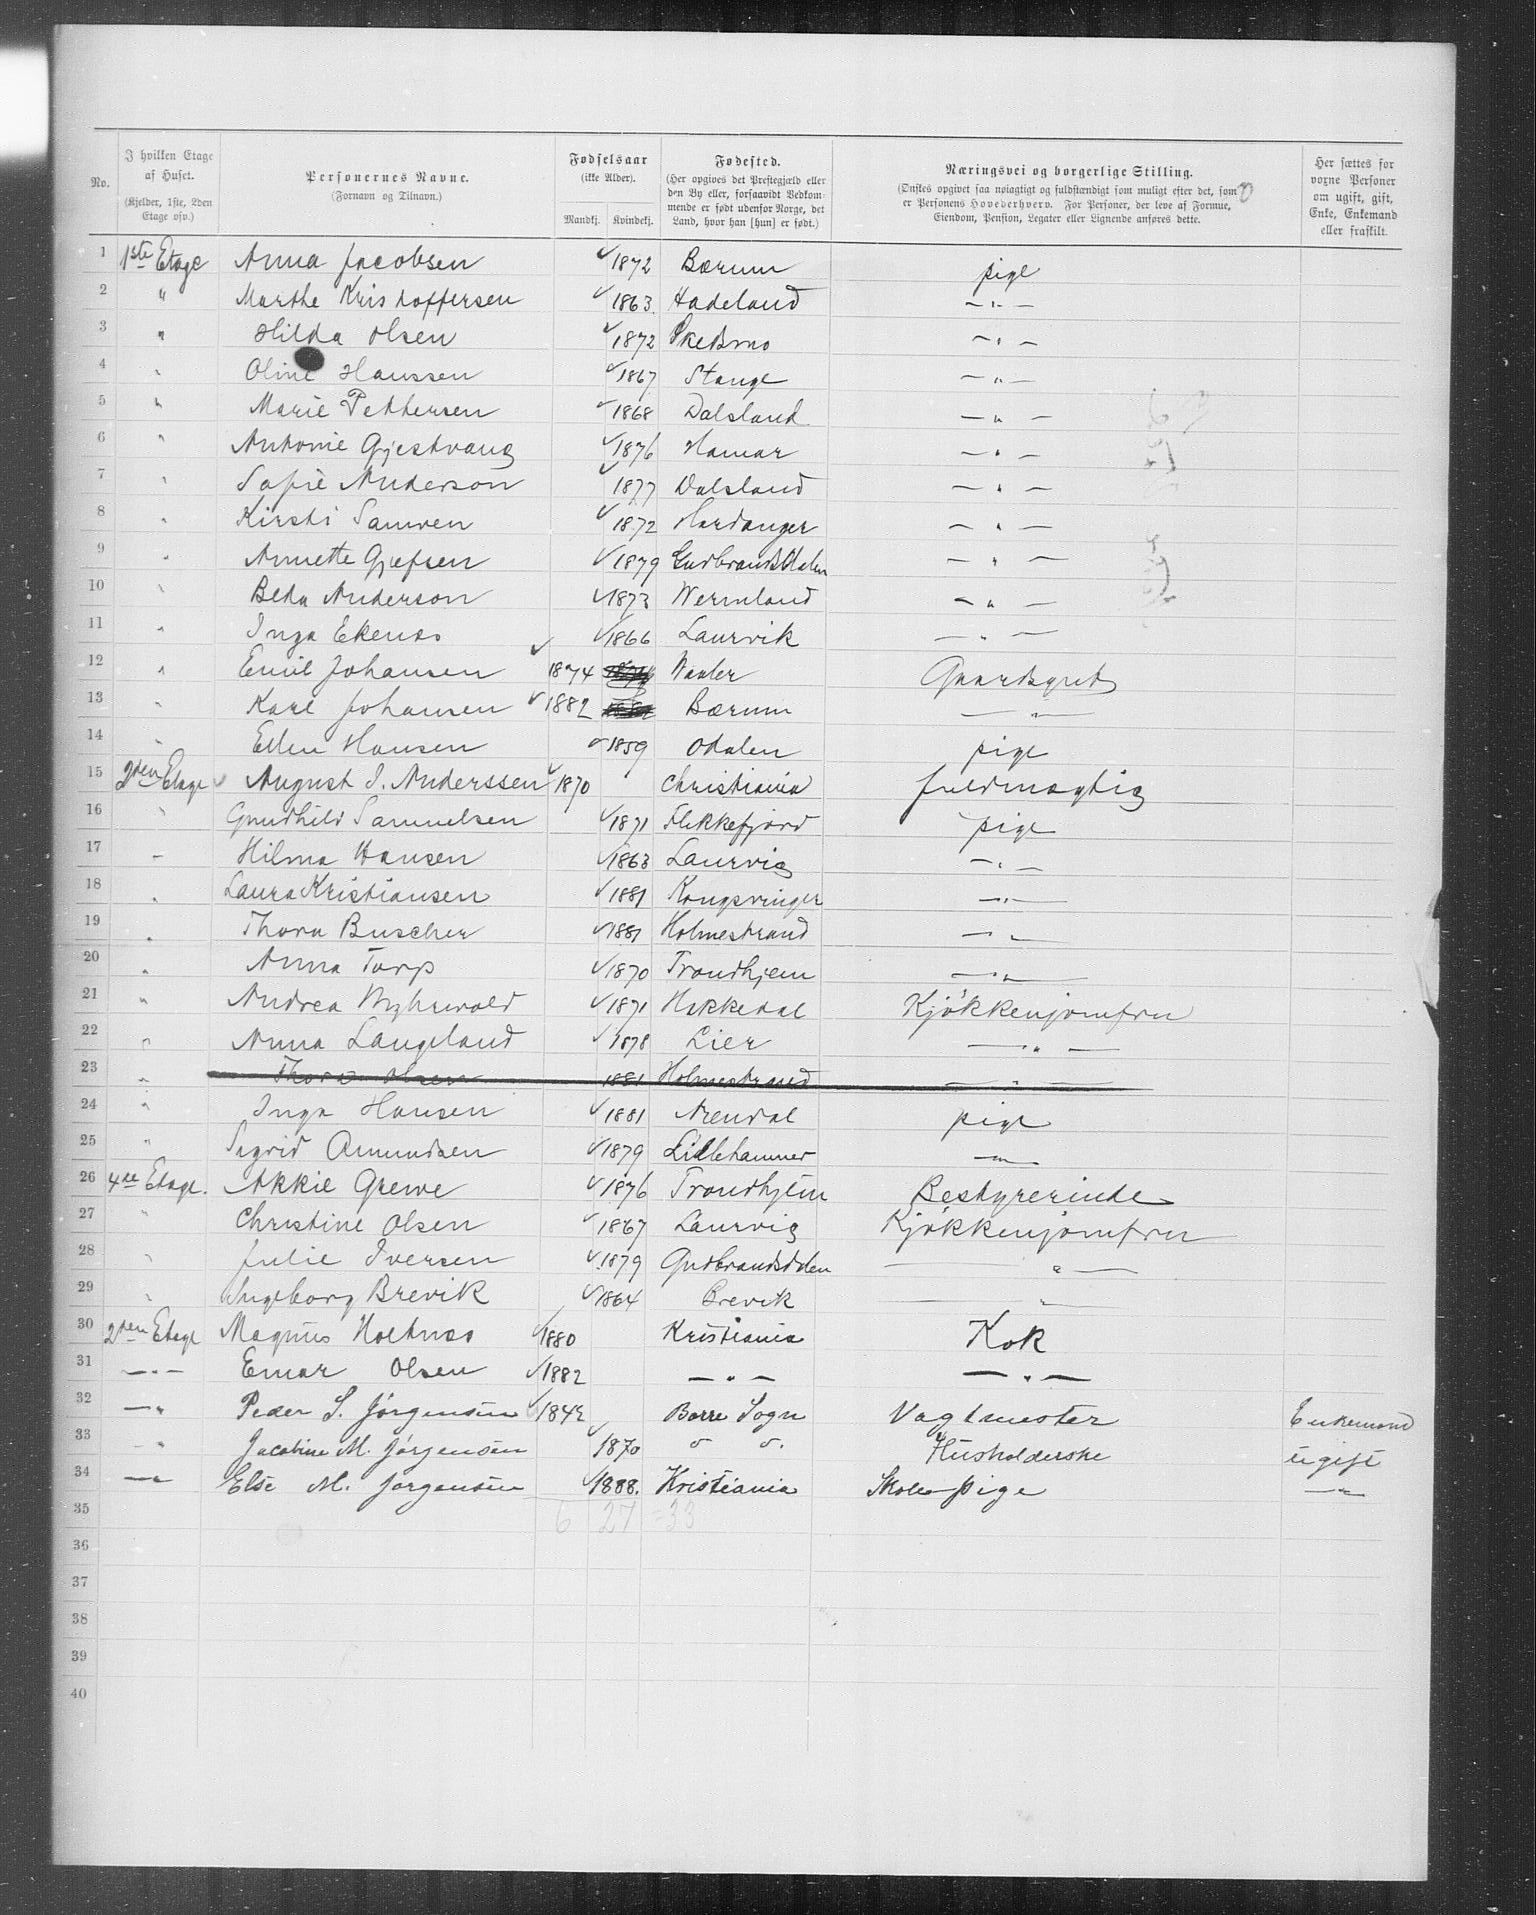 No. I hvilken Etage af Huset. (Kjelder, 1ste, 2den Etage osv.) Personernes Navne. (Fornavn og Tilnavn.) Fødselsaar (ikke Alder). Mandkj. Kvindekj. Fødested. (Her opgives det Prestegjæld eller den By eller, forsaavidt Vedkommende er født udenfor Norge, det Land, hvor han [hun] er født.) Næringsvei og borgerlige Stilling. (Ønskes opgivet saa nøiagtigt og fuldstændigt som muligt efter det, som er Personens Hovederhverv. For Personer, der leve af Formue, Eiendom, Pension, Legater eller Lignende anføres dette. Her sættes for voxne Personer om ugift, gift, Enke, Enkemand eller fraskilt.
1 1ste Etage Anna Jacobsen 1872 Bærum pige
2 " Marthe Kristoffersen 1863 Hadeland — " —
3 " Hilda Olsen 1872 — " —
4 " Oline Hanssen 1867 Stange — " —
5 " Marie Pettersen 1868 Dalsland — " —
6 " Antonie Gjestvang 1876 Hamar — " —
7 " Sofie Anderson 1877 Dalsland — " —
8 " Kirsti 1872 Hardanger — " —
9 " Annette 1879 Gudbrandsdalen — " —
10 " Beda Anderson 1873 Wermland — " —
11 " Inga 1866 Laurvik — " —
12 " Emil Johansen 1874 Waaler Gaardsgut
13 " Karl Johansen 1882 Bærum — " —
14 " Ellen Hansen 1859 Odalen pige
15 2den Etage August J. Anderssen 1870 Christiania fuldmægtig
16 " Gundhild Samuelsen 1871 Flekkefjord pige
17 — Hilma Hansen 1863 Laurvig — " —
18 " Laura Kristiansen 1881 Kongsvinger — " —
19 " Thora Buscher 1881 Holmestrand — " —
20 " Anna Torp 1870 Trondhjem — " —
21 " Andrea 1871 Hakkedal Kjøkkenjomfru
22 " Anna Langeland 1878 Lier — " —
23 " Thora Olsen 1881 Holmestrand — " —
24 " Inga Hansen 1881 Arendal pige
25 " Sigrid Amundsen 1879 Lillehammer — " —
26 4de Etage. Akkie Grewe 1876 Trondhjem Bestyrerinde
27 " Christine Olsen 1867 Laurvig Kjøkkenjomfru
28 " Julie Iversen 1879 Gudbrandsdalen — " —
29 " Ingeborg Brevik 1864 Brevik — " —
30 2den Etage Magnus 1880 Kristiania Kok
31 — " — Einar Olsen 1882 — " — — " —
32 — " Peder S. Jørgensen 1842 Borre Sogn Vagtmester Enkemand
33 — " Jacobine M. Jørgensen 1870 " ". Husholderske ugift
34 — " Else M. Jørgensen 1888. Kristiania Skolepige — " —
35 6 27 = 33
36
37
38
39
40